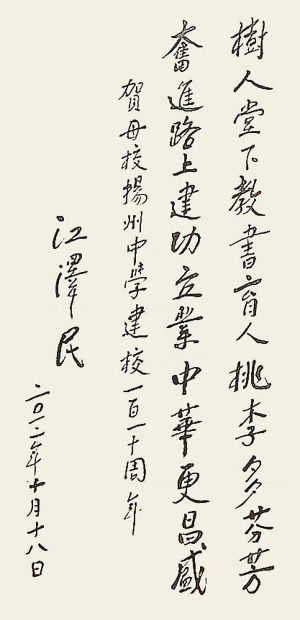 樹人堂下教書育人桃李多芬芳
奮進路上建功立業中華更昌盛
賀母校揚州中學建校一百一十周年
江澤民
二〇一二年十月十八日